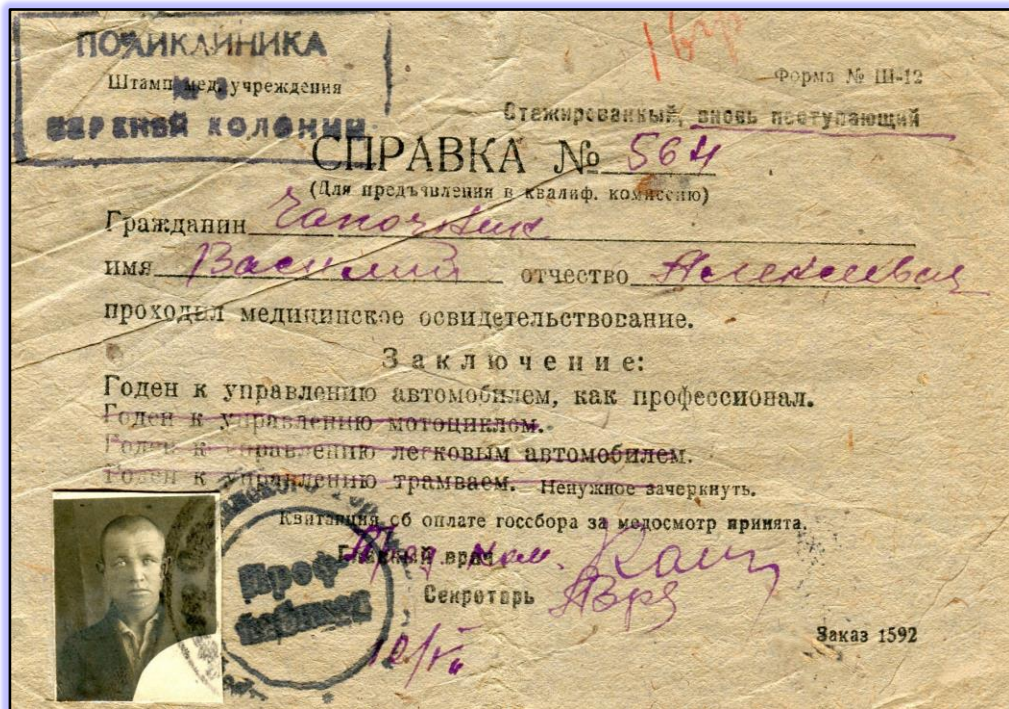 ПОЛИКЛИНИКА
Штамп мед. учреждения
№ 3
КОЛОНИИ
1 гр
Форма № Ш-12
Стажированный, вновь поступающий
СПРАВКА № 564
(Для предъявления в квалиф. комиссию)
Гражданин
имя Василий отчество Алексеевич
проходил медицинское освидетельствование.
Заключение:
Годен к управлению автомобилем, как профессионал.
Годен к управлению мотоциклом.
Годен к управлению легковым автомобилем.
Годен к управлению трамваем. Ненужное зачеркнуть.
Квитанция об оплате госсбора за медосмотр принята.
Главный врач
Секретарь
Проф
Заказ 1592